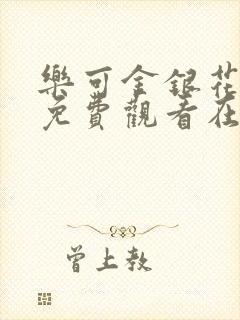 樂可金銀花
免費觀看在
曾上教